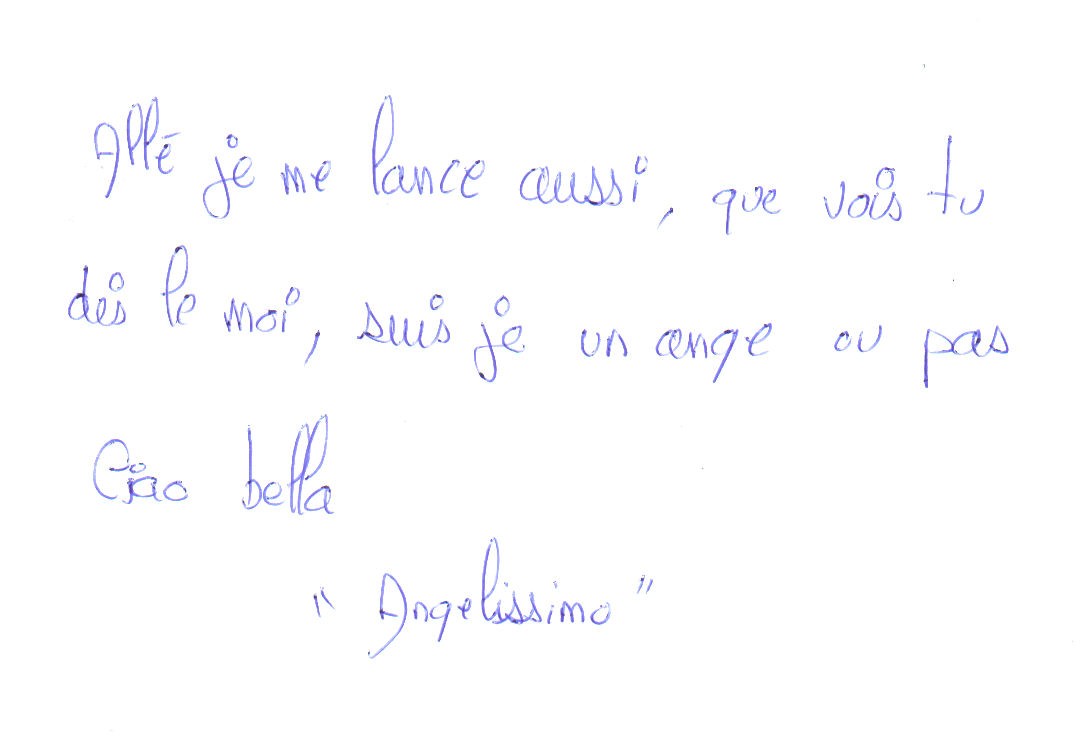 Allé je me lance aussi, que vois tu
dis le moi, suis je un ange ou pas
Ciao bella
"Angelissimo"